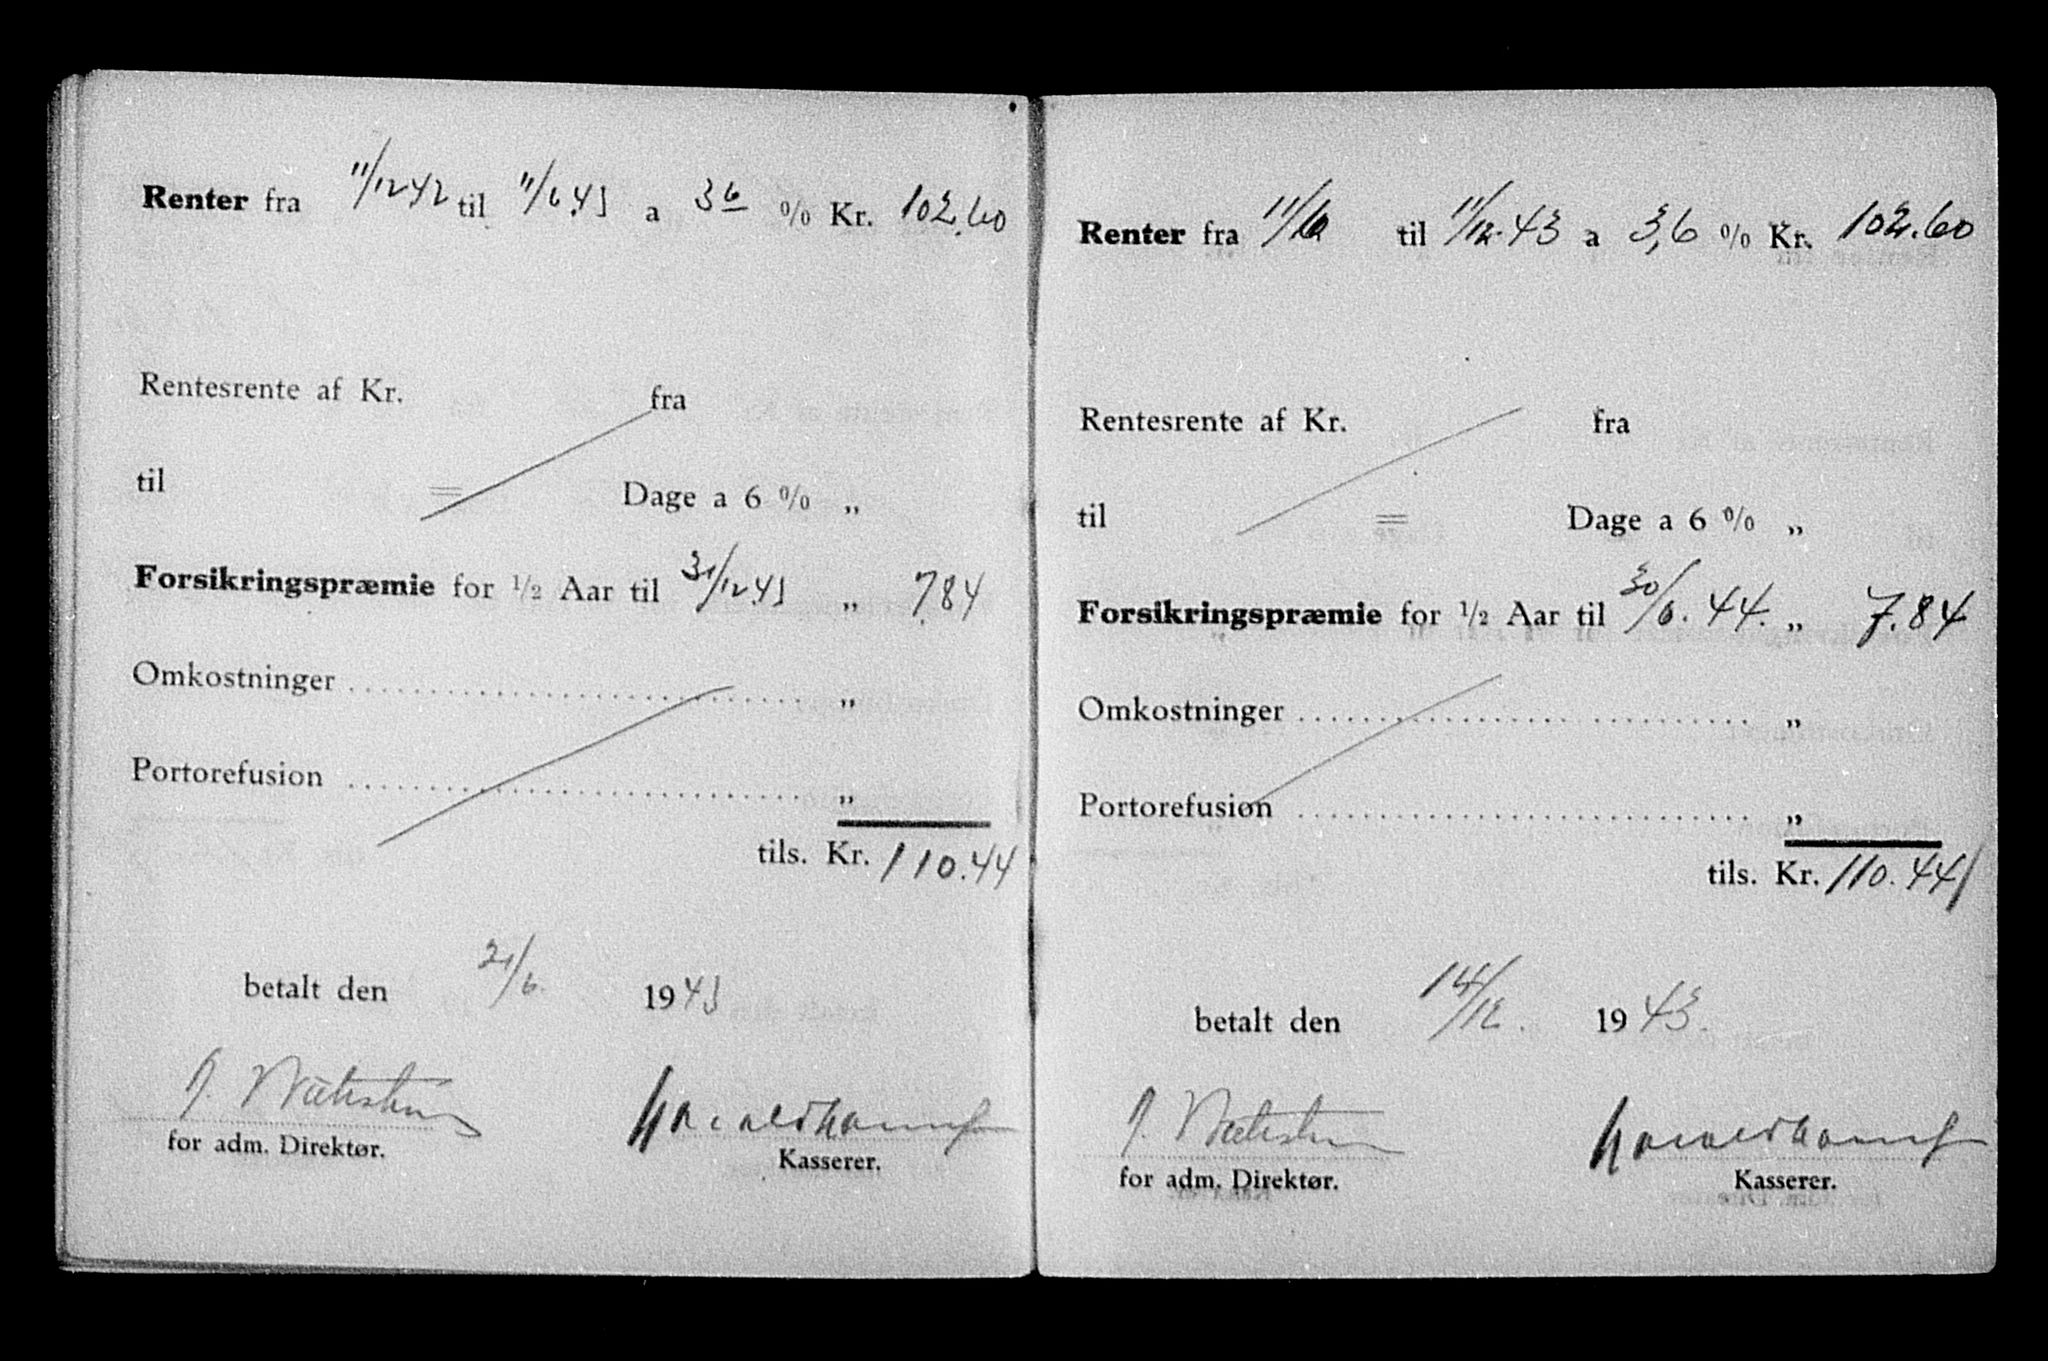 Renter fra 11/12 42 til 11/6 43 a 36 % Kr. 102.60
Rentesrente af Kr. fra
til = Dage a 6 % „
Forsikringspræmie for 1/2 Aar til 31/12 43 „ 7.84
Omkostninger „
Portorefusion „
tils. Kr. 110.44
betalt den 21/6. 1943
for adm. Direktør.
Kasserer.
Renter fra 11/6 til 11/12.43 a 3,6 % Kr. 102.60
Rentesrente af Kr. fra
til = Dage a 6 % „
Forsikringspræmie for 1/2 Aar til 30/6.44. „ 7.84
Omkostninger „
Portorefusion „
tils. Kr. 110.44
betalt den 14/12. 1943.
for adm. Direktør.
Kasserer.